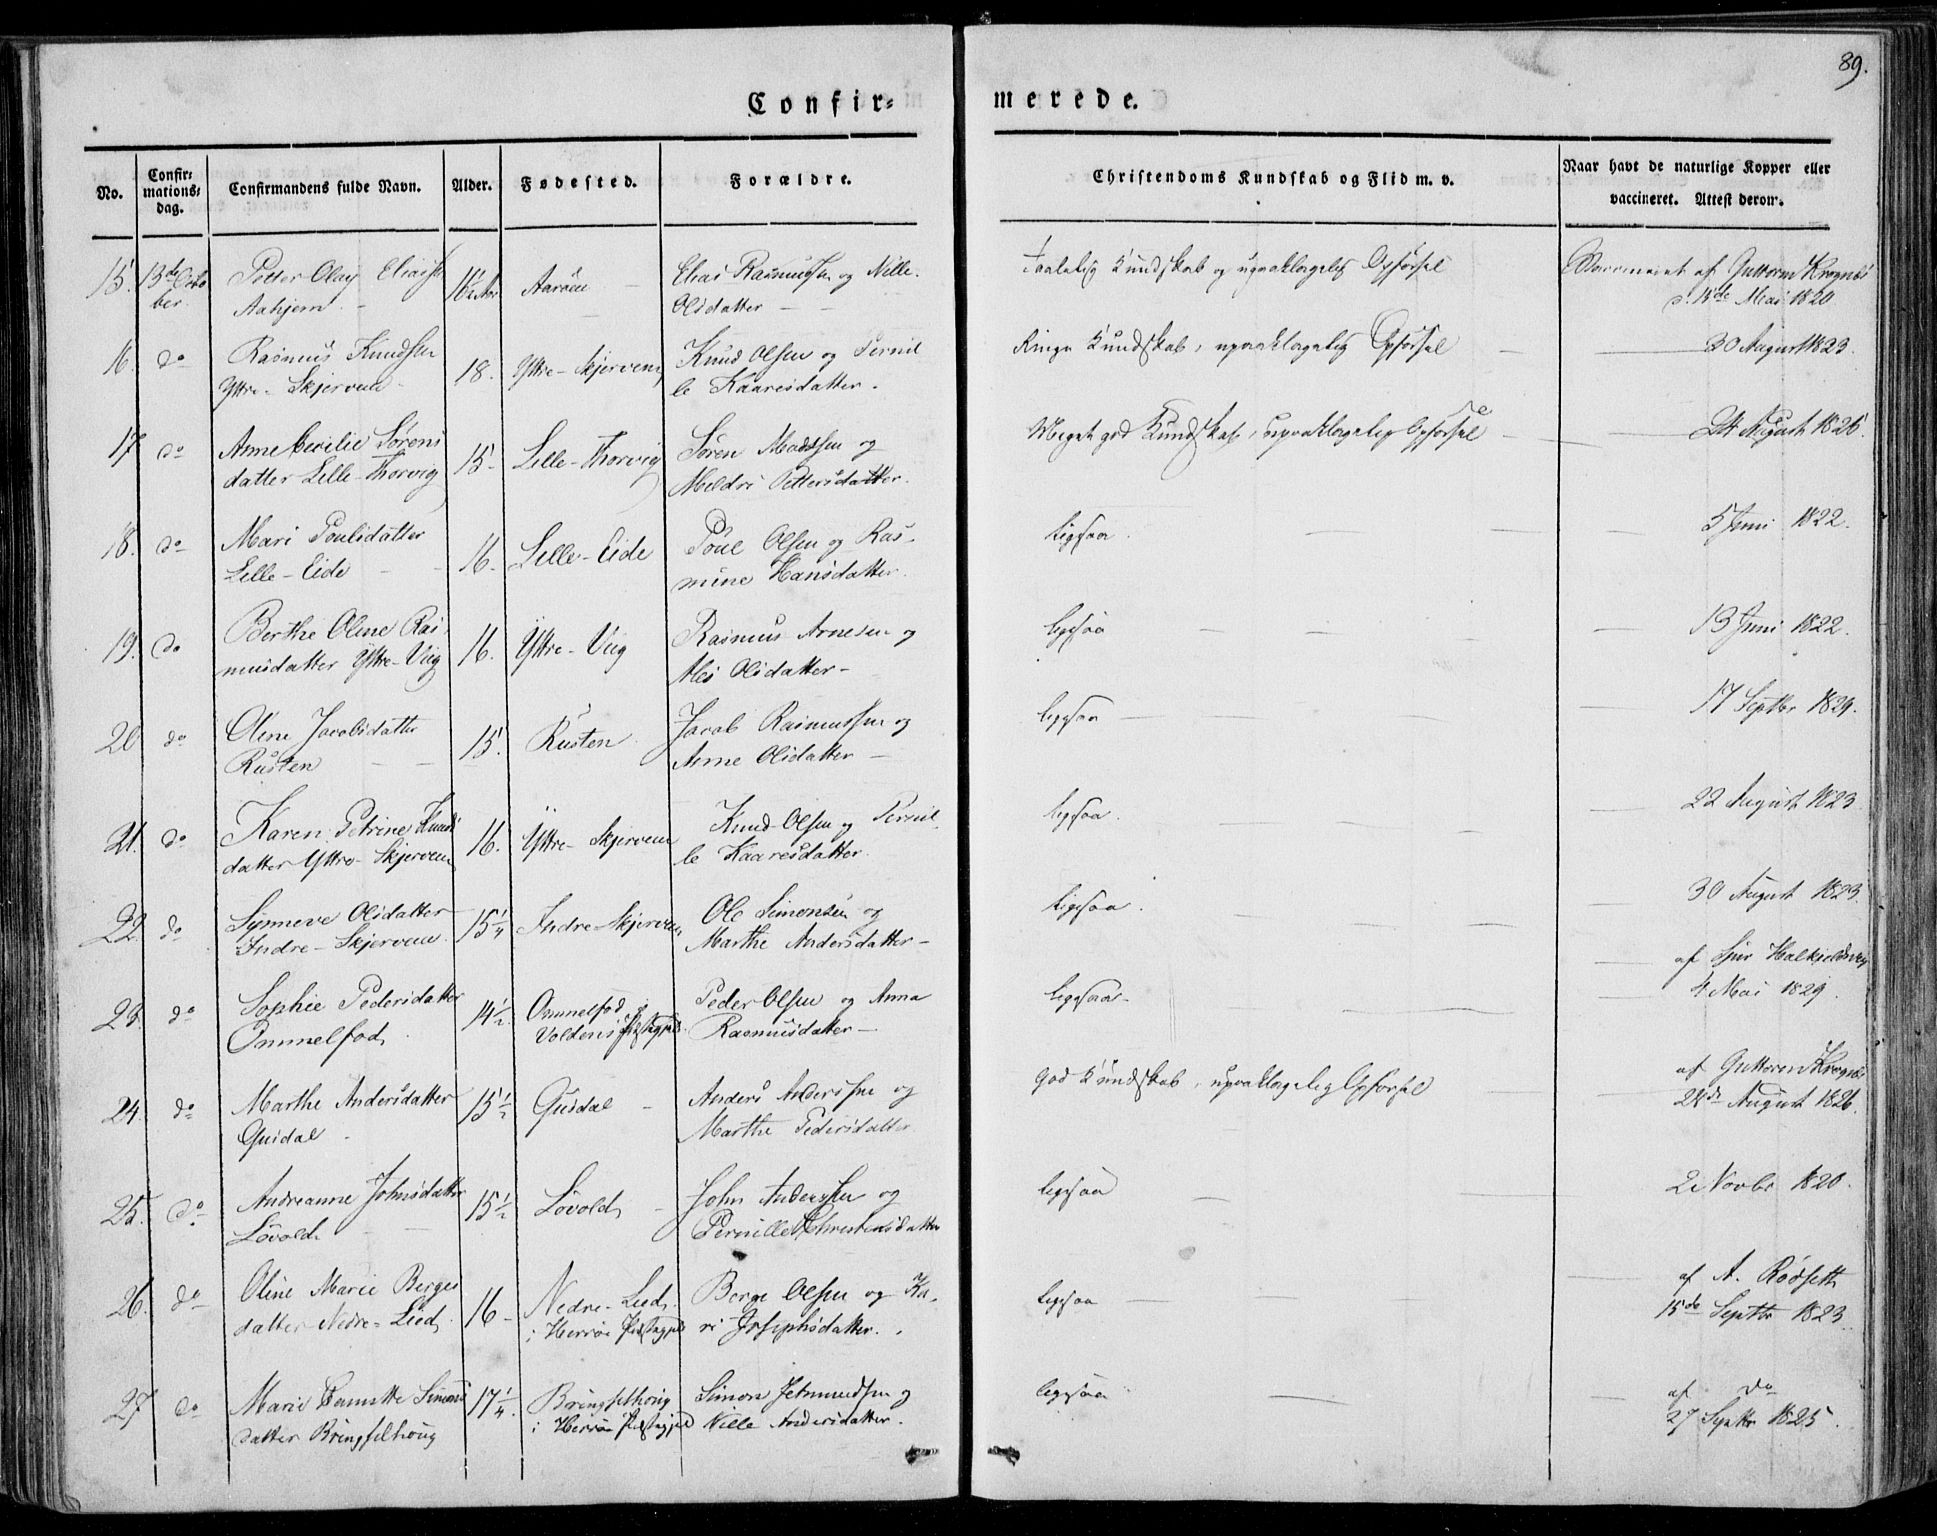 89.
Confir=
merede.
No.
Confir=
mations=
dag.
Confirmandens fulde Navn.
Alder.
Fødested.
Forældre.
Christendoms Kundskab og Flid m. v.
Naar havt de naturlige Kopper eller
vaccineret. Attest derom.
15. 13de Octo Petter Olay Eliass 16½ Aar Aarøen Elias Rasmussen og Nille
ber Aahjem Olsdatter
Taalelig Kundskab og upaaklagelig Opførsel
Vaccineret af Guttorm Krognæs
d. 15de Mai 1820.
16. do Rasmus Knudsen 18. Yttre-Skjervene Knud Olsen og Pernil
Yttre-Skjervene le Kaaresdatter.
Ringe Kundskab, upaaklagelig Opførsel
30 August 1823.
17. do Anne Cecilie Sørens 15 Lille-Thorvig Søren Madssen og
datter Lille-Thorvig Meldri Pettersdatter.
Meget god Kundskab, upaaklagelig Opførsel
24 August 1826.
18. do Mari Poulsdatter 16. Lille-Eide Poul Olsen og Ras-
Lille-Eide mine Hansdatter.
ligesaa.
5 Juni 1822.
19. do Berthe Oline Ras- 16. Yttre-Viig Rasmus Arnesen og
musdatter Yttre-Viig Ales Olsdatter
ligesaa
13 Juni 1822.
20 do Oline Jacobsdatter 15. Rusten Jacob Rasmussen og
Rusten Anne Olsdatter
ligesaa
17 Septbr 1824.
21. do Karen Petrine Knuds 16. Yttre-Skjervene Knud Olsen og Pernil
datter Yttre-Skjervene le Kaaresdatter.
ligesaa.
22 August 1823
22. do Synneve Olsdatter 15¼ Indre Skjerven Ole Simonsen og
Indre-Skjervene Marthe Andersdatter
ligesaa.
30 August 1823.
23. do Sophie Pedersdatter 14½. Ommelfod i Peder Olsen og Anna
Ommelfod. Voldens Præstegjeld. Rasmusdatter
ligesaa
af Sjur Halkjelsvig
4 Mai 1829.
24. do Marthe Andersdatter 15½ Gusdal Anders Anderssen og
Gusdal Marthe Pedersdatter
god Kundskab, upaaklagelig Opførsel
af Guttorm Krognæs
24de August 1826.
25. do Andreanne Johnsdatter 15½ Løvold John Anderssen og
Løvold Pernille Christensdatter
ligesaa
2 Novbr 1820.
26. do Oline Marie Berges 16 Nedre-Lied Berge Olsen og Ka-
datter Nedre-Lied. i Herrøe Præstegjeld ri Josephsdatter.
ligesaa
af A. Rødseth
15de Septbr 1823.
27. do Marie Simons 17¼. Bringselhoug Simon Jetmundsen og
datter Bringselhoug i Herrøe Præstegjeld Nille Andersdatter.
ligesaa
af do
27 Septbr 1825.